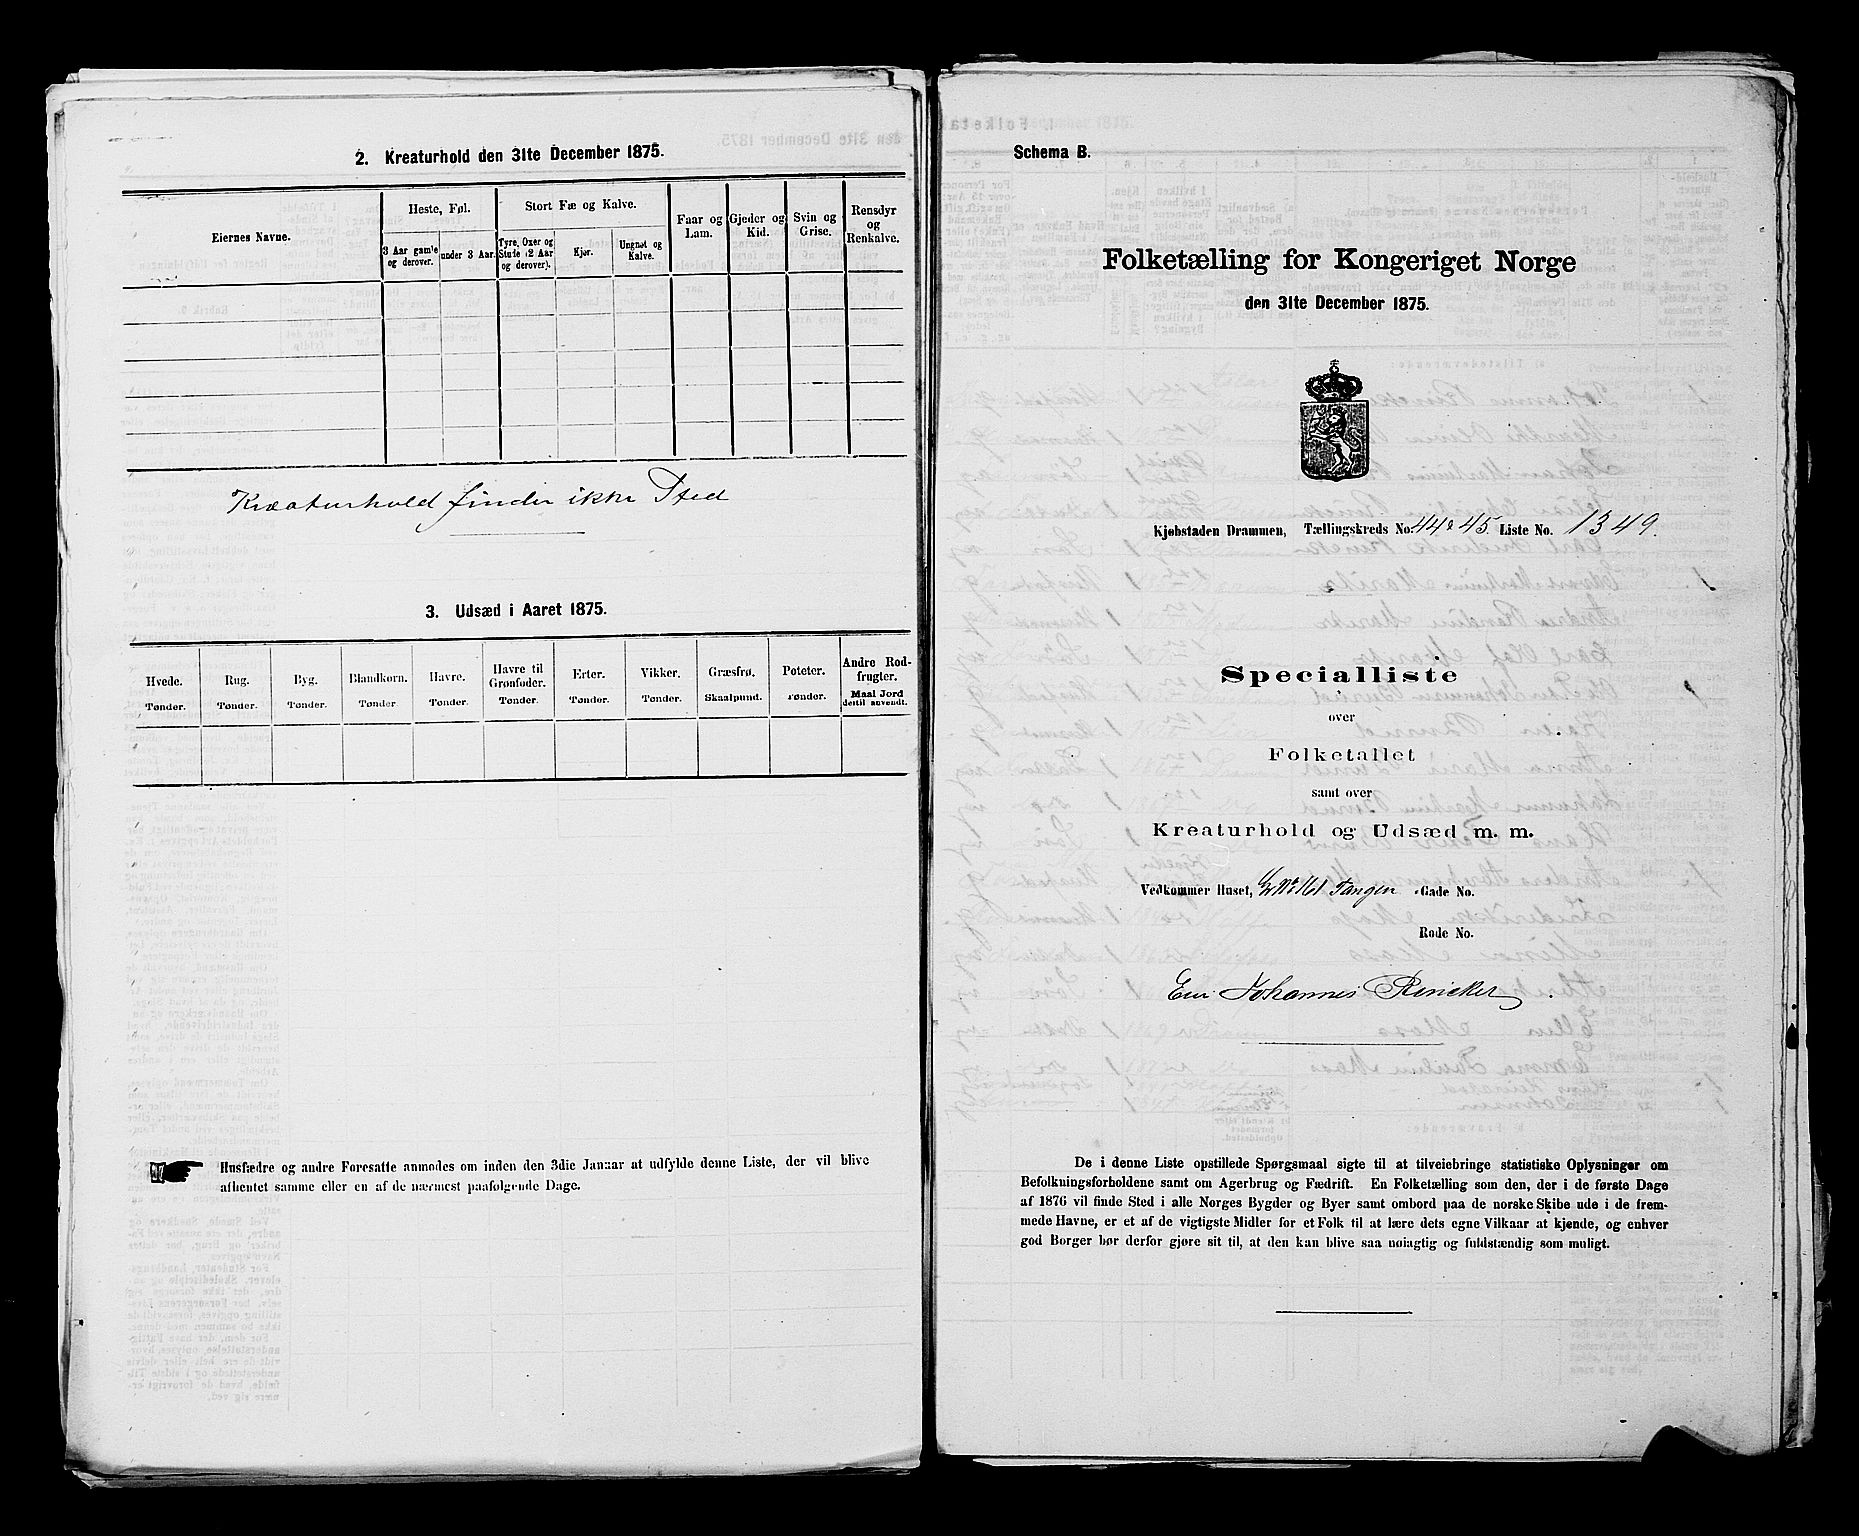 2. Kreaturhold den 31te December 1875.
Eiernes Navne.
Heste, Føl.
3 Aar gamle og derover.
under 3 Aar.
Stort Fæ og Kalve.
Tyre, Oxer og Stude (2 Aar og derover).
Kjør.
Ungnøt og Kalve.
Faar og Lam.
Gjeder og Kid.
Svin og Grise.
Rensdyr og Renkalve.
Kreaturhold finder ikke Sted
3. Udsæd i Aaret 1875.
Hvede. Tønder.
Rug. Tønder.
Byg. Tønder.
Blandkorn. Tønder.
Havre. Tønder.
Havre til Grønfoder. Tønder.
Erter. Tønder.
Vikker. Tønder.
Græsfrø. Skaalpund.
Poteter. Tønder.
Andre Rodfrugter. Maal Jord dertil anvendt.
Husfædre og andre Foresatte anmodes om inden den 3die Januar at udfylde denne Liste, der vil blive
afhentet samme eller en af de nærmest paafølgende Dage.
Schema B.
Folketælling for Kongeriget Norge
den 31te December 1875.
Kjøbstaden Drammen, Tællingskreds No. 44 & 45. Liste No. 1349.
Specialliste
over
Folketallet
samt over
Kreaturhold og Udsæd m. m.
Vedkommer Huset, Tangen Gade No.
Rode No.
Eier Johannes Rineker
De i denne Liste opstillede Spørgsmaal sigte til at tilveiebringe statistiske Oplysninger om
Befolkningsforholdene samt om Agerbrug og Fædrift. En Folketælling som den, der i de første Dage
af 1876 vil finde Sted i alle Norges Bygder og Byer samt ombord paa de norske Skibe ude i de frem-
mede Havne, er et af de vigtigste Midler for et Folk til at lære dets egne Vilkaar at kjende, og enhver
god Borger bør derfor gjøre sit til, at den kan blive saa nøiagtig og fuldstændig som muligt.